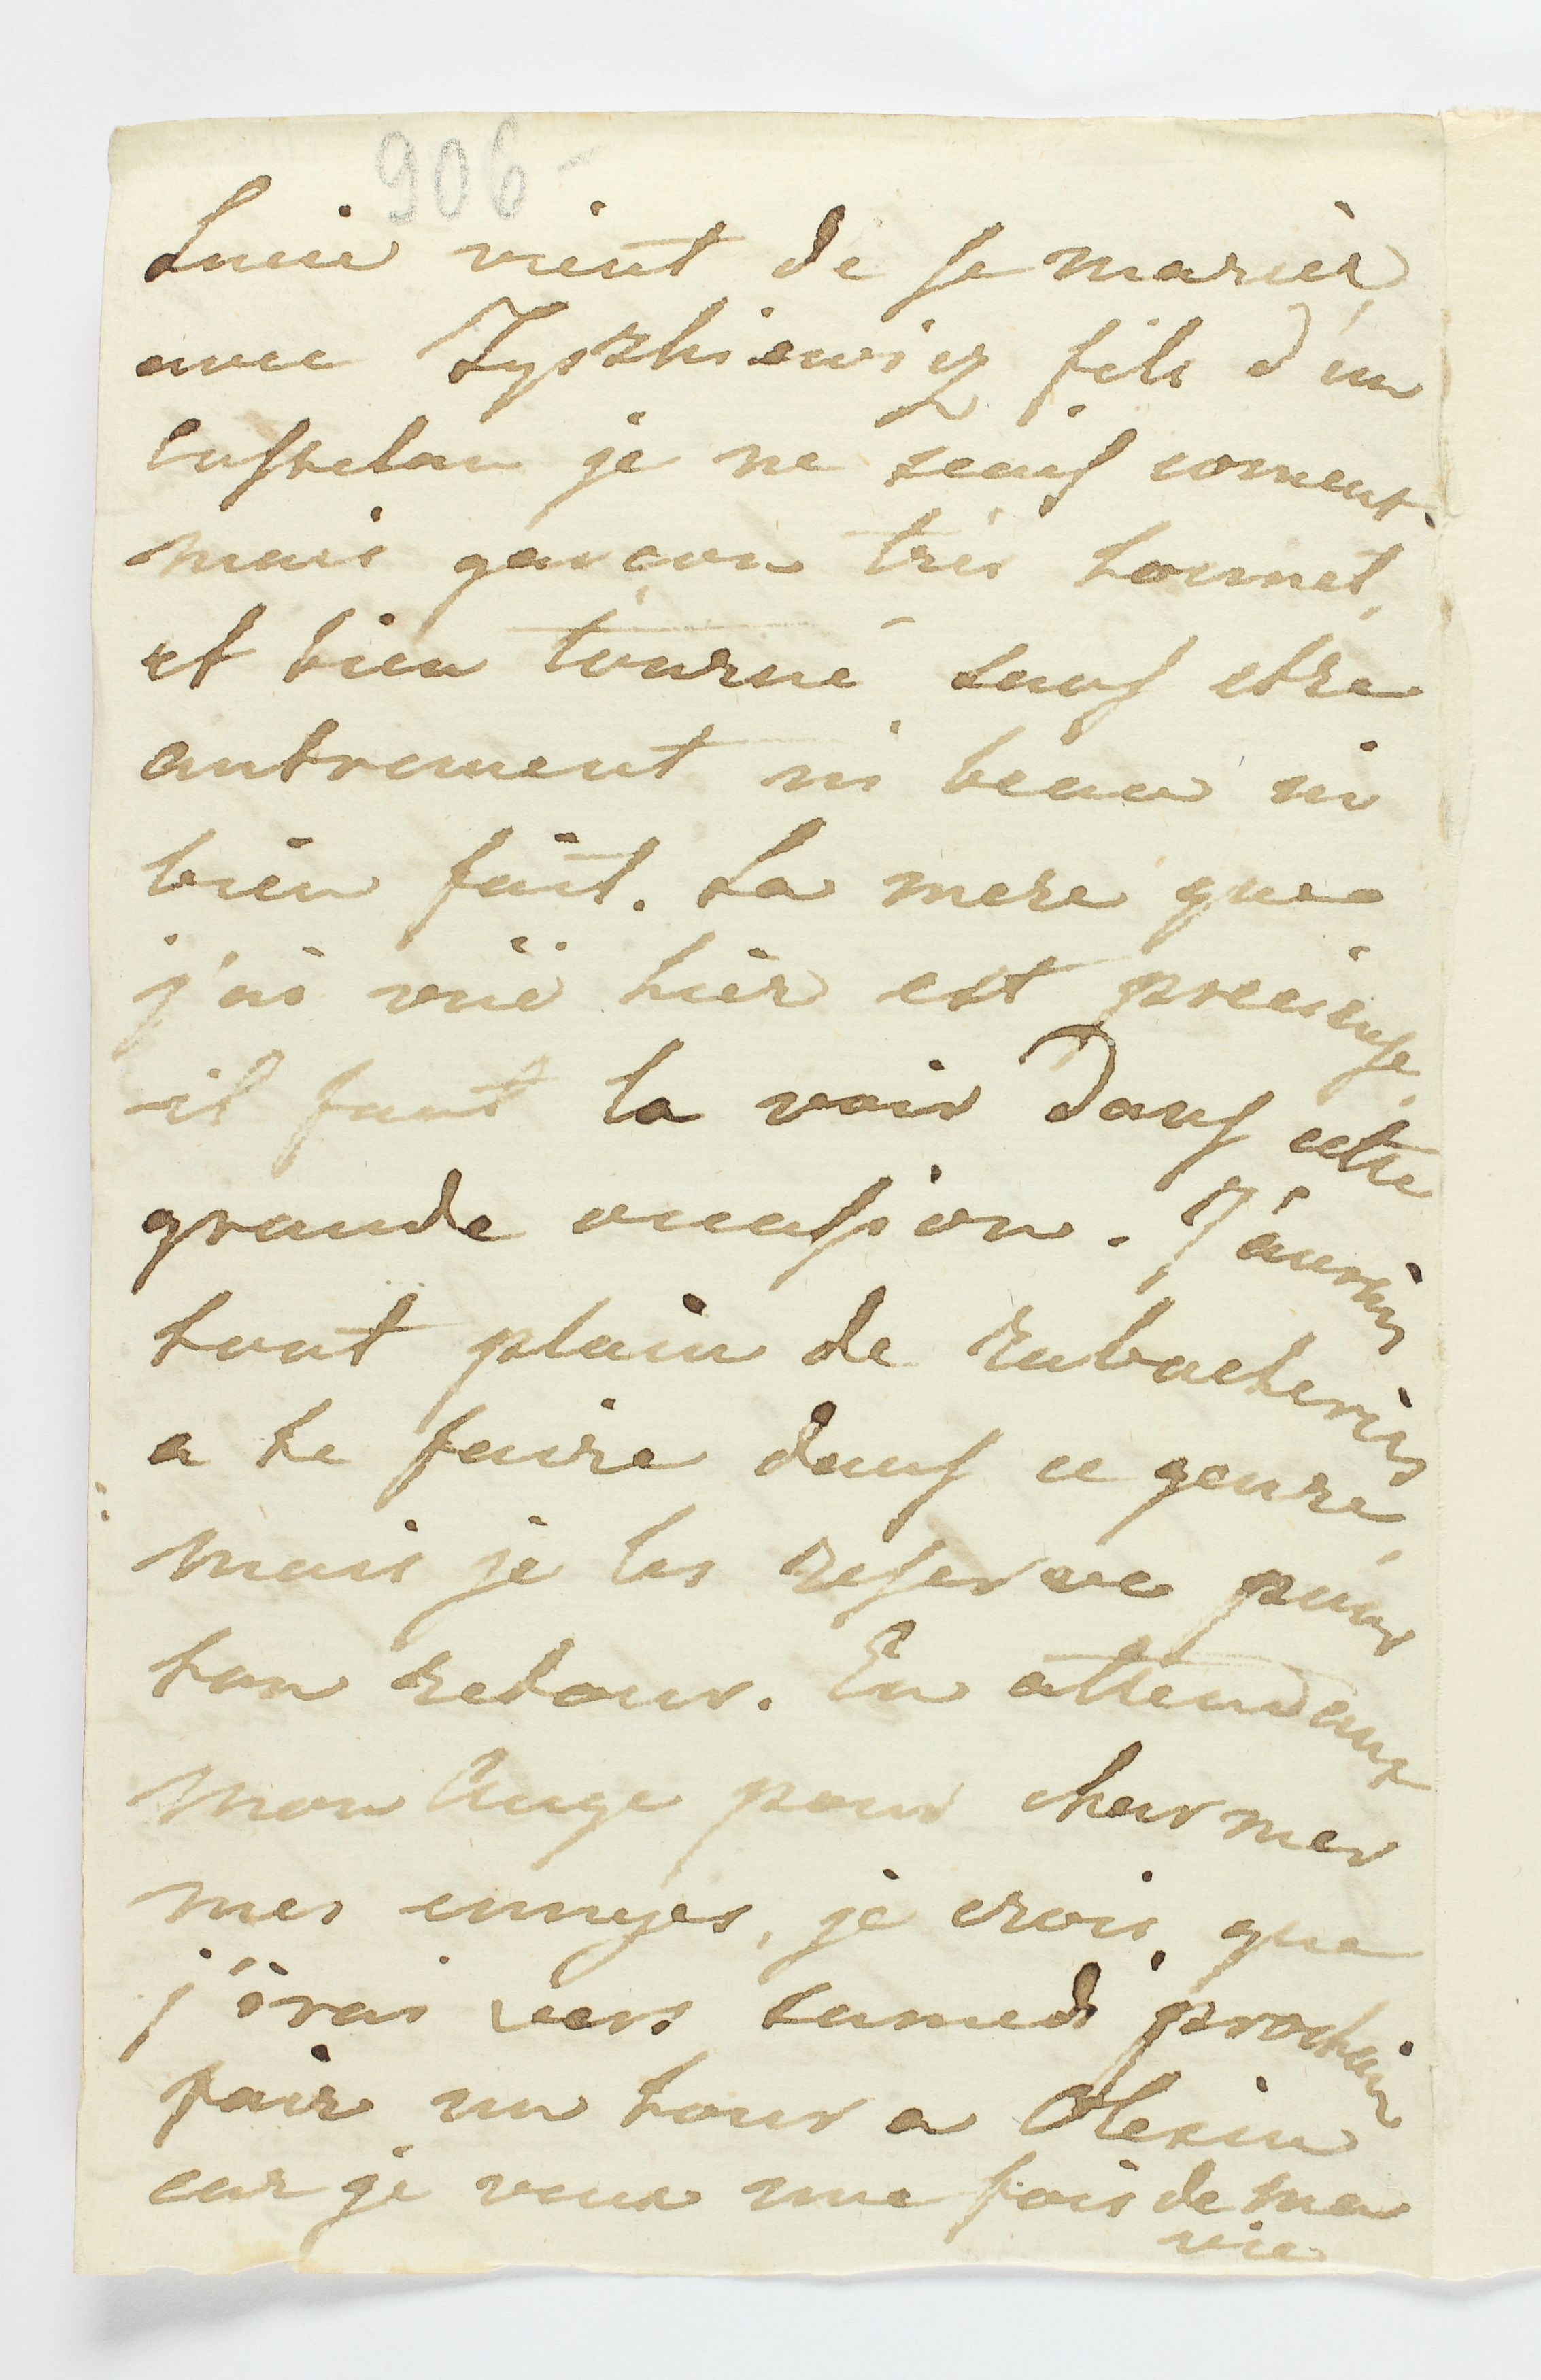 906 –
Lucie vient de se marier,
avec Tyszkiewicz fils d'un
Castelan je ne scais coment.
mais garçon très honnet,
et bien tourné, sans etre
autrement ni beau ni
bien fait. La mere que
j'ai vüe hier est precieuse,
il faut la voir dans cette
grande occasion. J'aurais
tout plain de rabacheries
a te faire dans ce genre,
mais je les reserve pour
ton retour. En attendant
mon Ange pour charmer
mes ennyes, je crois, que
j'irai vers samedi prochain
faire un tour a Olesin
car je veux une fois de ma
vie